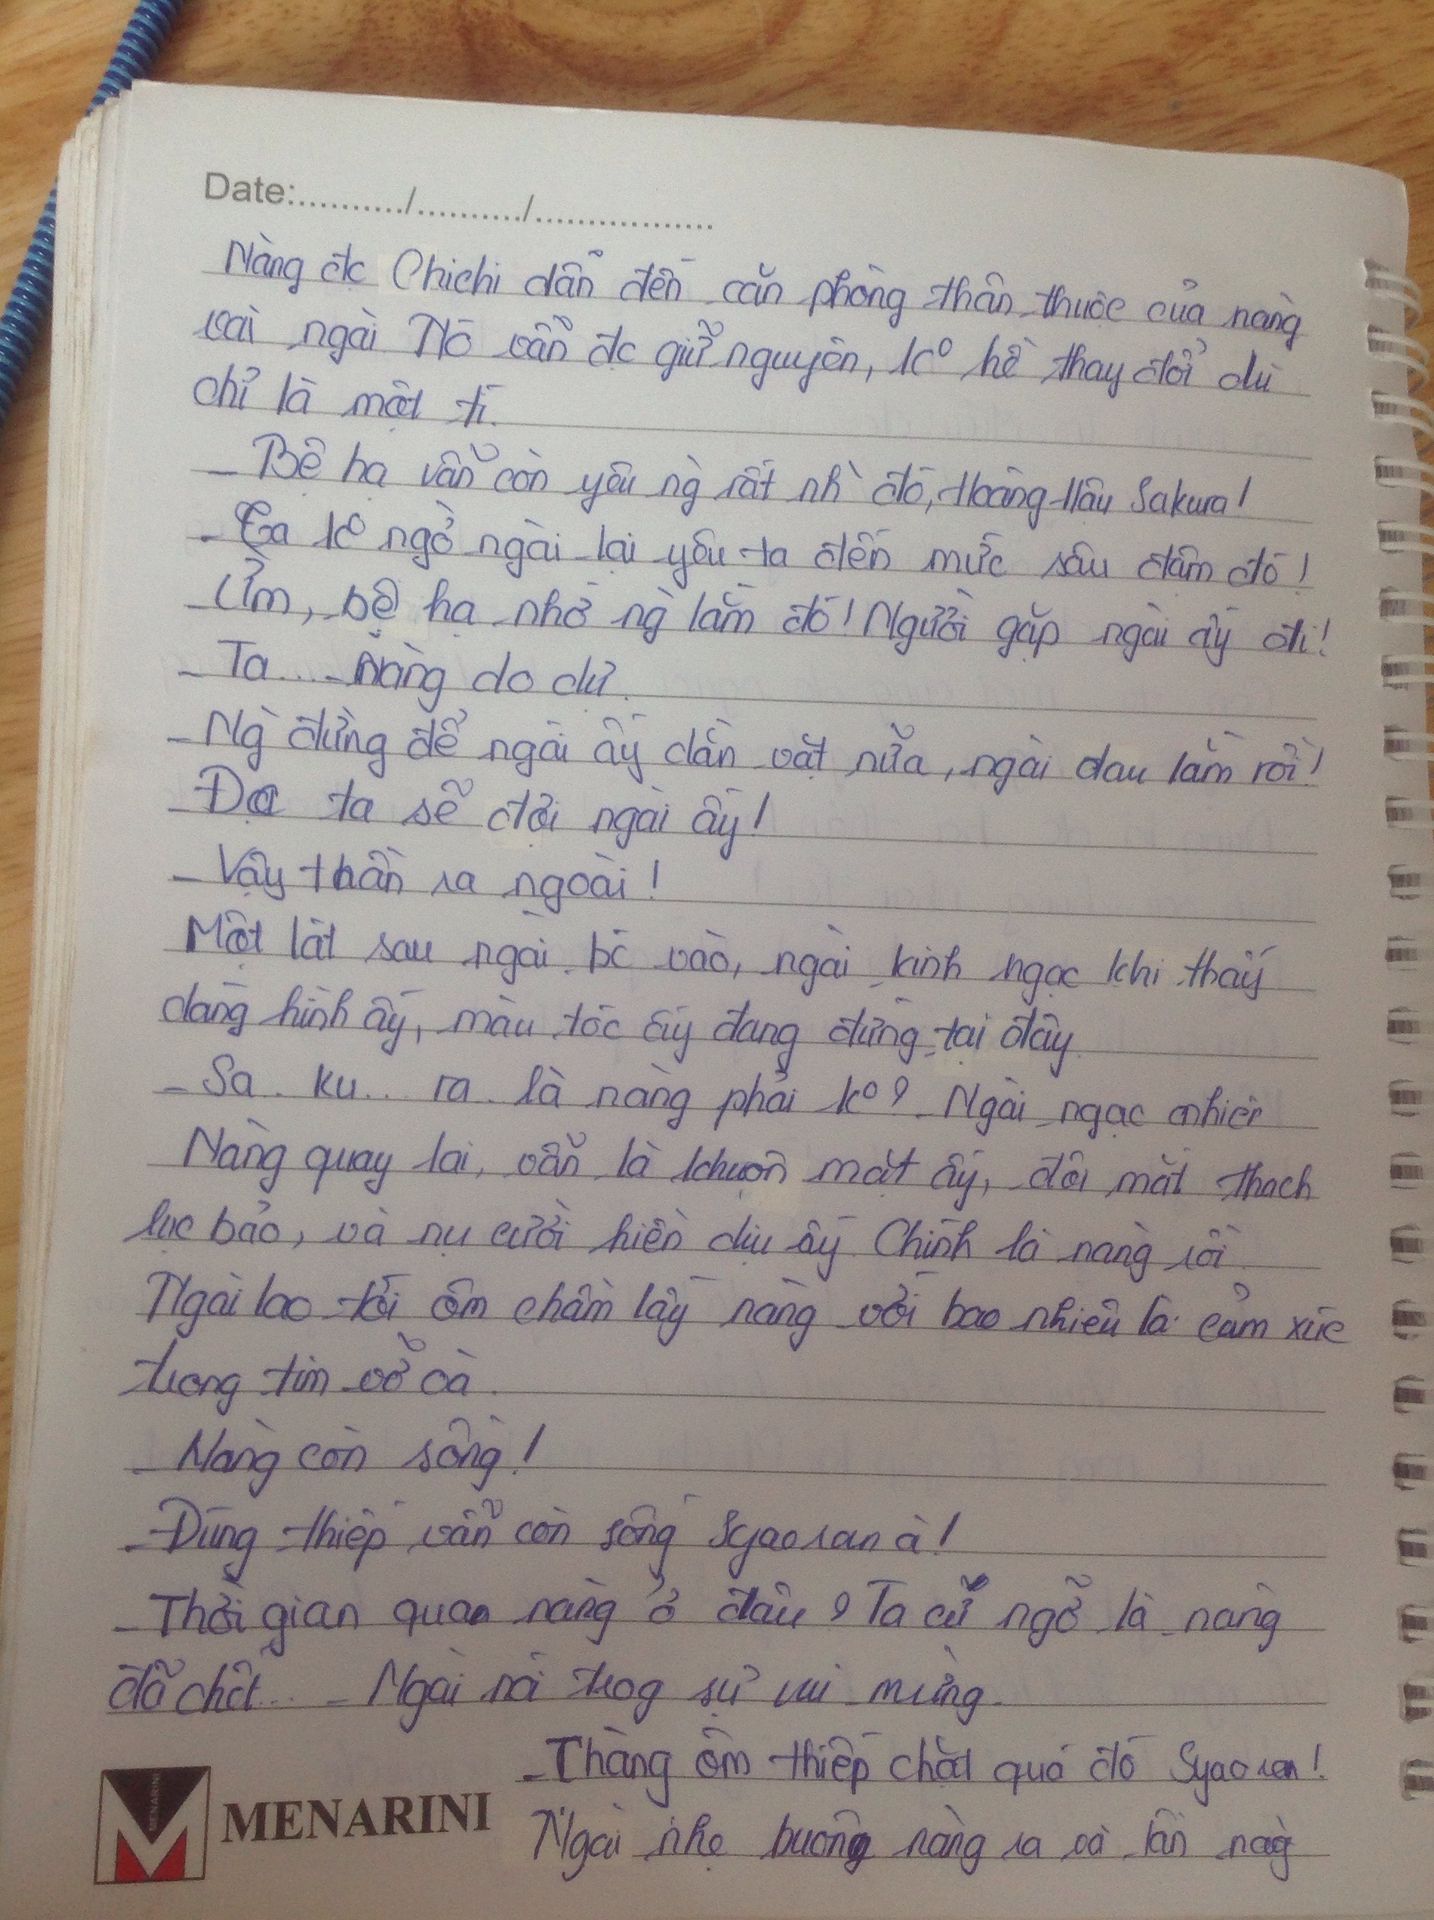 Date:.........../........../.................
Nàng đc Chichi dẫn đến căn phòng thân thuộc của nàng
vài ngài Nó vẫn đc giữ nguyên, ko hề thay đổi dù
chỉ là một tí.
- Bệ hạ vẫn còn yêu ng rất nhì đó, Hoàng Hậu Sakura!
- Ta ko ngờ ngài lại yêu ta đến mức sâu đậm đó!
- Ừm, bệ hạ nhớ ng lắm đó! Người gặp ngài ấy đi!
- Ta... - Nàng do dự.
- Ng đừng để ngài ấy dằn vặt nữa, ngài đau lắm rồi!
- Đc ta sẽ đợi ngài ấy!
- Vậy thần ra ngoài!
Một lát sau ngài bc vào, ngài kinh ngạc khi thấy
dáng hình ấy, màu tóc ấy đang đứng tại đây
- Sa.. ku.. ra.. là nàng phải ko? - Ngài ngạc nhiên
Nàng quay lại, vẫn là khuôn mặt ấy, đôi mắt thạch
lục bảo, và nụ cười hiền dịu ấy. Chính là nàng rồi.
Ngài lao tới ôm chầm lấy nàng với bao nhiêu là cảm xúc
trong tim vỡ oà.
- Nàng còn sống!
- Đúng thiếp vẫn còn sống Syaoran à!
- Thời gian qua nàng ở đâu? Ta cứ ngỡ là nàng
đã chết... - Ngài nói trog sự vui mừng.
- Chàng ôm thiếp chặt quá đó Syaoran!
Ngài nhẹ buông nàng ra và nàg
MENARINI
MENARINI